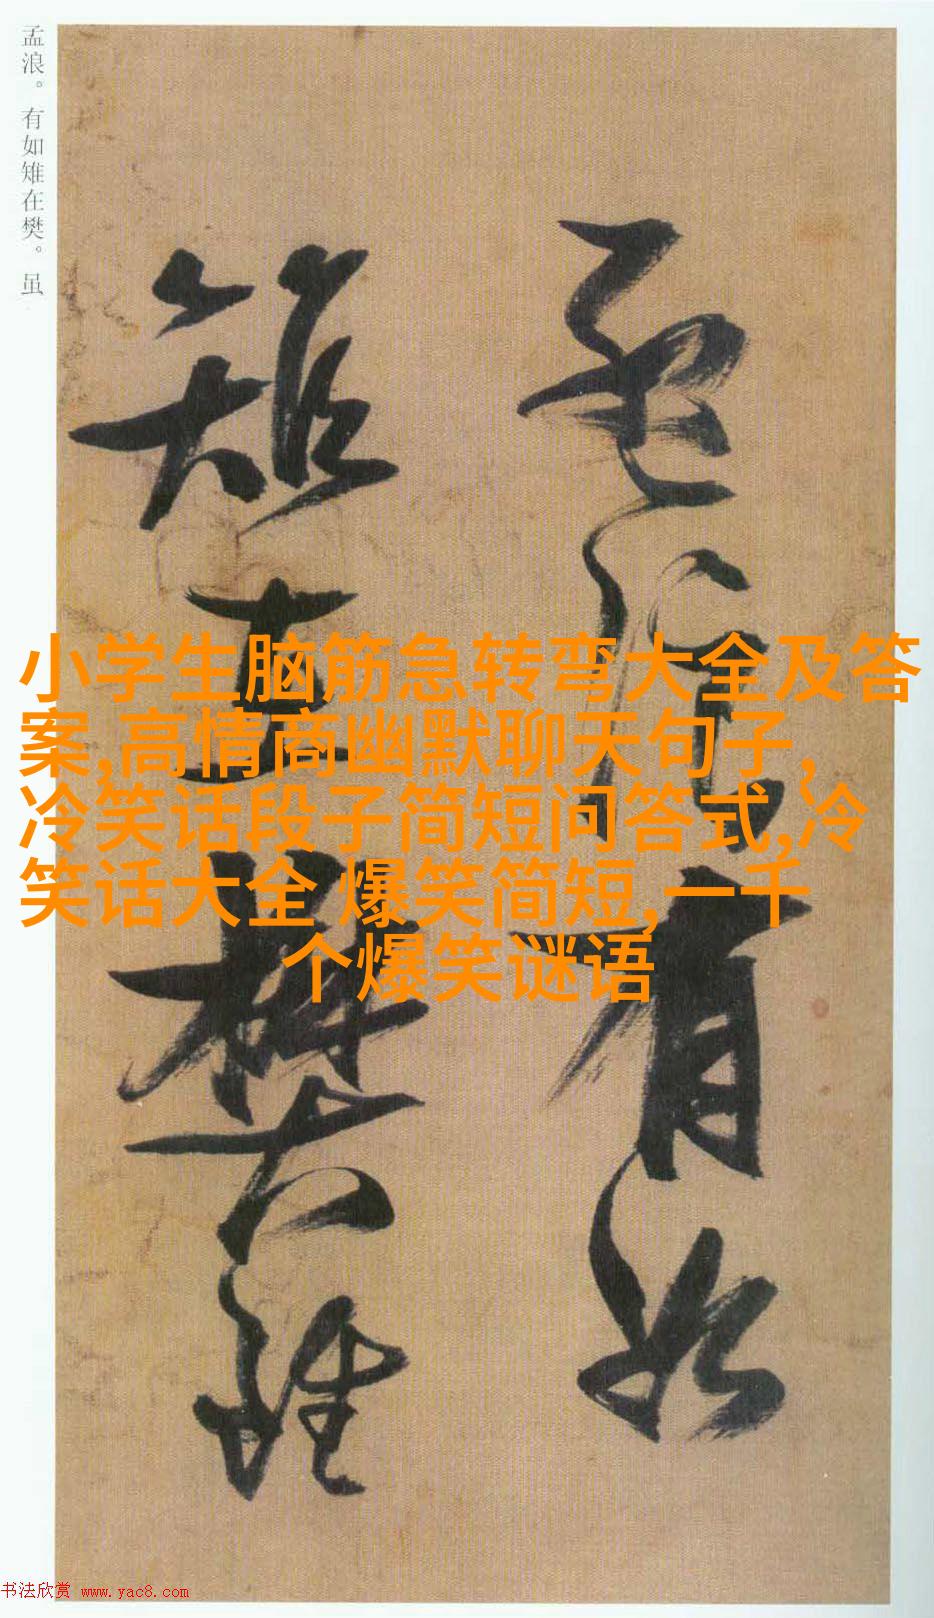 孟浪。有如雉在樊。虽
孟浪有如
雉在樊虽
小学生脑筋急转弯大全及答
案,高情商幽默聊天句子,
冷笑话段子简短问答式,冷
笑话大全 爆笑简短,一千
个爆笑谜语
书法欣赏 www.yac8.com